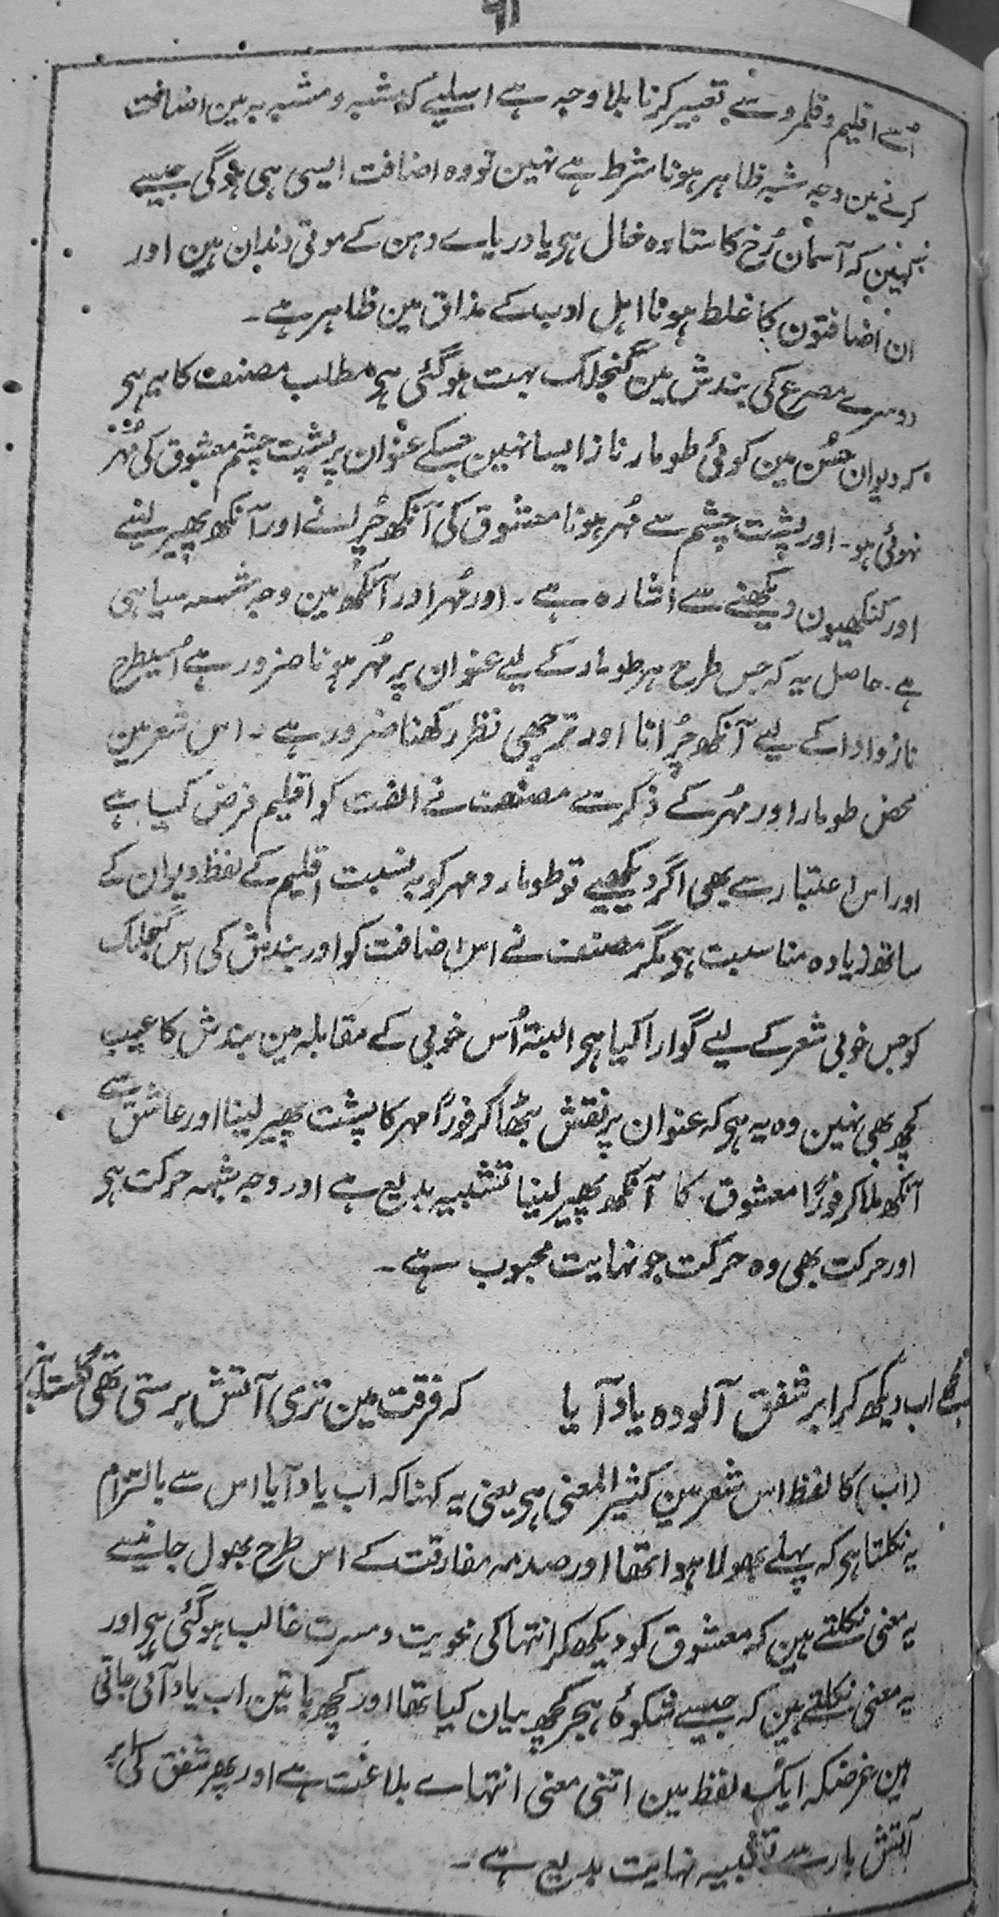 اُسے اقلیم و قلمرو سے تعبیر کرنا بلا وجہ ہے اسلیے کہ مشبہ و مشبہ بہ مین اضافت
کرنے مین وجہ شبہ ظاہر ہونا شرط ہے نہین تو وہ اضافت ایسی ہی ہوگی جیسے
کہین کہ آسمان رُخ کا ستارہ خال ہی یا دریاے دہن کے موتی دندان ہین اور
ان اضافتون کا غلط ہونا اہل ادب کے مذاق مین ظاہر ہے۔
دوسرے مصرع کی بندش مین گنجلک بہت ہوگئی ہی مطلب مصنف کا یہ ہی
کہ دیوان حُسن مین کوئی طومار ناز ایسا نہین جسکے عنوان پر پشت چشم معشوق کی مُہر
نہوئی ہو۔ اور پشت چشم سے مُہر ہونا معشوق کی آنکھ چُرانے اور آنکھ پھیر لینے
اور کنکھیون دیکھنے سے اشارہ ہے۔ اور مُہر اور آنکھ مین وجہ شبہ سیاہی
ہے۔ حاصل یہ کہ جس طرح ہر طومار کے لیے عنوان پر مُہر ہونا ضرور ہے اُسیطرح
ناز و ادا کے لیے آنکھ چُرانا اور ترچھی نظر رکھنا ضرور ہے۔ اس شعر مین
محض طومار اور مہر کے ذکر سے مصنف نے الفت کو اقلیم فرض کیا ہے
اور اس اعتبار سے بھی اگر دیکھیے تو طومار و مہر کو بہ نسبت اقلیم کے لفظ دیوان کے
ساتھ زیادہ مناسبت ہی مگر مصنف نے اس اضافت کو اور بندش کی اس گنجلک
کو جس خوبی شعر کے لیے گوارا کیا ہی البتہ اُس خوبی کے مقابلہ مین بندش کا عیب
کچھ بھی نہین وہ یہ ہی کہ عنوان پر نقش بٹھا کر فوراً مہر کا پشت پھیر لینا اور عاشق سے
آنکھ ملا کر فوراً معشوق کا آنکھ پھیر لینا تشبیہ بدیع ہے اور وجہ شبہ حرکت ہی
اور حرکت بھی وہ حرکت جو نہایت محبوب ہے۔
مجھے اب دیکھ کر ابر شفق آلودہ یاد آیا
کہ فرقت مین تری آتش برستی تھی گلستان پر
(اب) کا لفظ اس شعر مین کثیر المعنی ہی یعنی یہ کہنا کہ اب یاد آیا اس سے بالتزام
یہ نکلتا ہی کہ پہلے بھولا ہوا تھا اور صدمہ مفارقت کے اس طرح بھول جانے سے
یہ معنی نکلتے ہین کہ معشوق کو دیکھ کر انتہا کی محویت و مسرت غالب ہوگئی ہی اور
یہ معنی نکلتے ہین کہ جیسے شکوۂ ہجر کچھ بیان کیا تھا اور کچھ باتین اب یاد آئی جاتی
ہین غرضکہ ایک لفظ مین اتنی معنی انتہاے بلاغت ہے اور پھر شفق کی ابر
آتش بار سے تشبیہ نہایت بدیع ہے۔